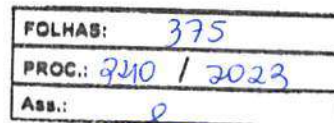 FOLHAS: 375
PROC.: 240 / 2023
Ass.: